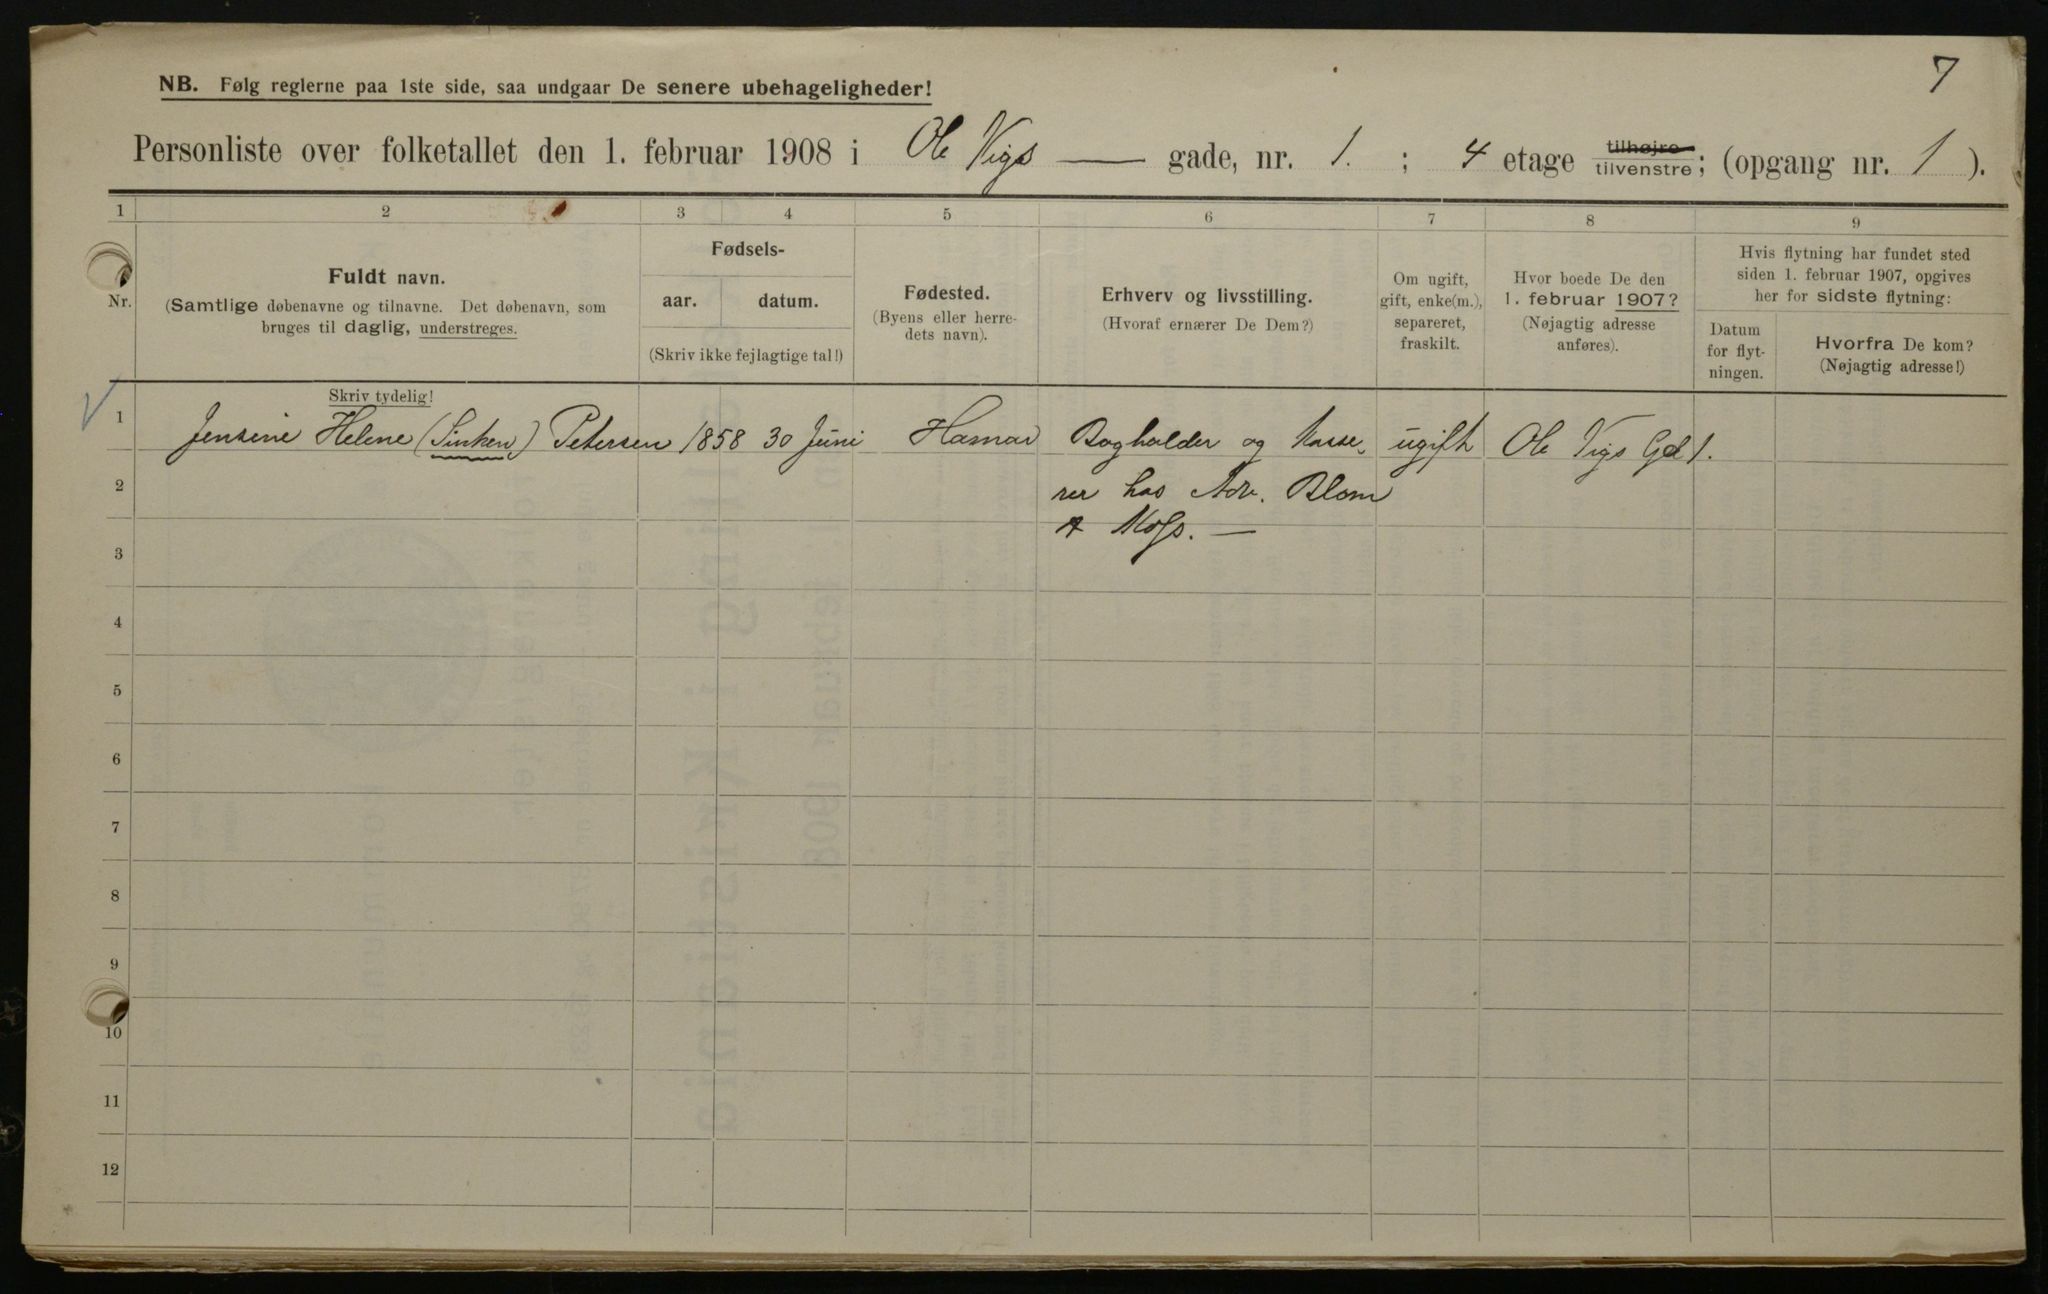 7
NB. Følg reglerne paa 1ste side, saa undgaar De senere ubehageligheder!
Personliste over folketallet den 1. februar 1908 i Ole Vigs gade, nr. 1. ; 4 etage tilhøjre tilvenstre; (opgang nr. 1).
1 2 3 4 5 6 7 8 9
Nr.
Fuldt navn.
(Samtlige døbenavne og tilnavne. Det døbenavn, som
bruges til daglig, understreges.
Fødsels-
aar. datum.
(Skriv ikke fejlagtige tal!)
Fødested.
(Byens eller herre-
dets navn).
Erhverv og livsstilling.
(Hvoraf ernærer De Dem?)
Om ugift,
gift, enke(m.),
separeret,
fraskilt.
Hvor boede De den
1. februar 1907?
(Nøjagtig adresse
anføres).
Hvis flytning har fundet sted
siden 1. februar 1907, opgives
her for sidste flytning:
Datum
for flyt-
ningen.
Hvorfra De kom?
(Nøjagtig adresse!)
Skriv tydelig!
1 Jensine Helene (Sinken) Petersen 1858 30 Juni Hamar Bogholder og Kasse- ugift Ole Vigs Gd 1.
2 rer hos Adv. Blom
3
4
5
6
7
8
9
10
11
12